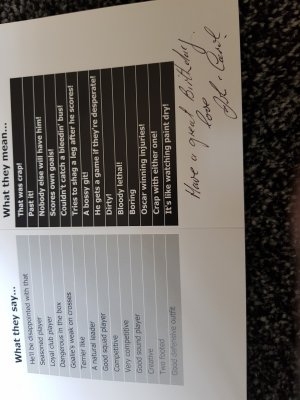 What they say...
He'll be disappointed with that
Seasoned player
Loyal club player
Dangerous in the box
Goalie's weak on crosses
Terrier like
A natural leader
Good squad player
Competitive
Very competitive
Good sound player
Creative
Two footed
Good defensive outfit
What they mean...
That was crap!
Past it!
Nobody else will have him!
Scores own goals!
Couldn't catch a bleedin' bus!
Tries to shag a leg after he scores!
A bossy git!
He gets a game if they're desperate!
Dirty!
Bloody lethal!
Boring
Oscar winning injuries!
Crap with either one!
It's like watching paint dry!
Have a great Birthday
love